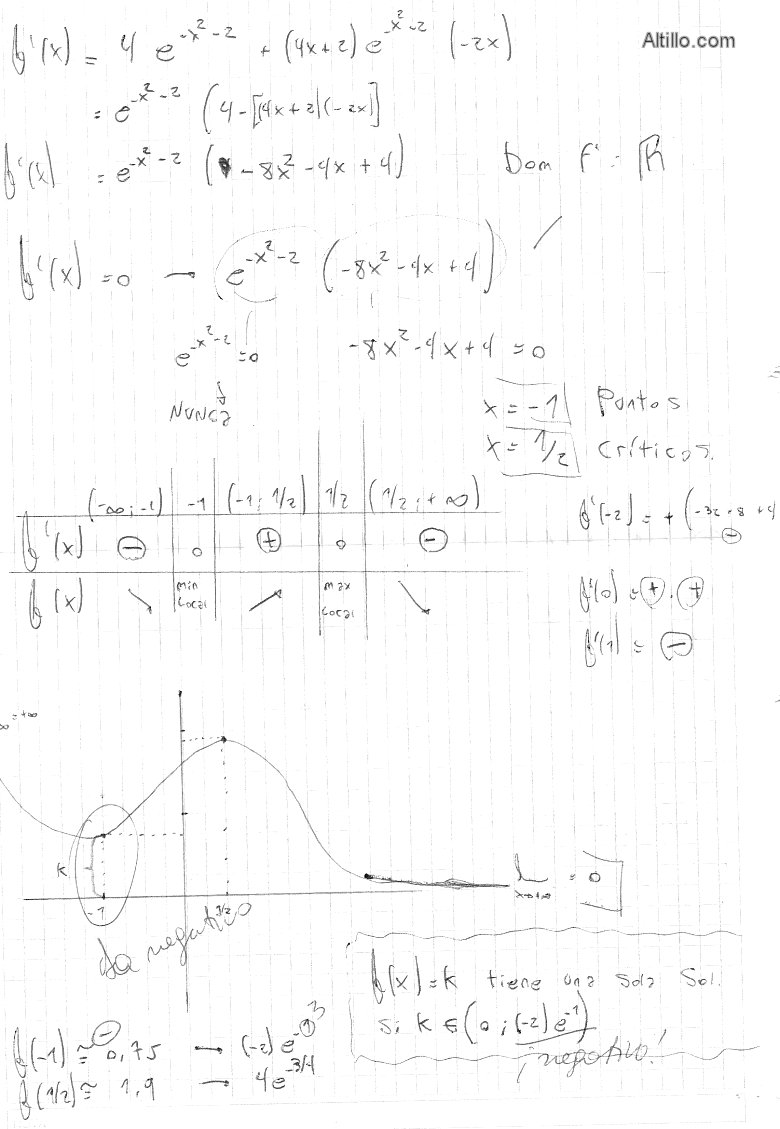 Altillo.com
f'(x) = 4 e^{-x²-2} + (4x+2) e^{-x²-2} (-2x)
= e^{-x²-2} (4-[(4x+2)(-2x)]
f'(x) = e^{-x²-2} (-8x²-4x+4) Dom f' : ℝ
f'(x) = 0 → e^{-x²-2} (-8x²-4x+4)
e^{-x²-2} = 0 -8x²-4x+4 = 0
Nunca
x = -1 Puntos
x = 1/2 críticos.
(-∞;-1) -1 (-1;1/2) 1/2 (1/2;+∞)
f'(x) - 0 + 0 -
f(x) ↘ min local ↗ max local ↘
f'(-2) = + (-32+8+4
-
f'(0) = + . +
f'(1) = -
∞ = +∞
K
-1 1/2
L x→+∞ = 0
da negativo
f(x)=k tiene una sola sol.
si k ∈ (0 ; (-2) e^{-1})
¡negativo!
-
f(-1) ≈ 0,75 → (-2) e^{-1} 3
f(1/2) ≈ 1,9 → 4e^{-3/4}